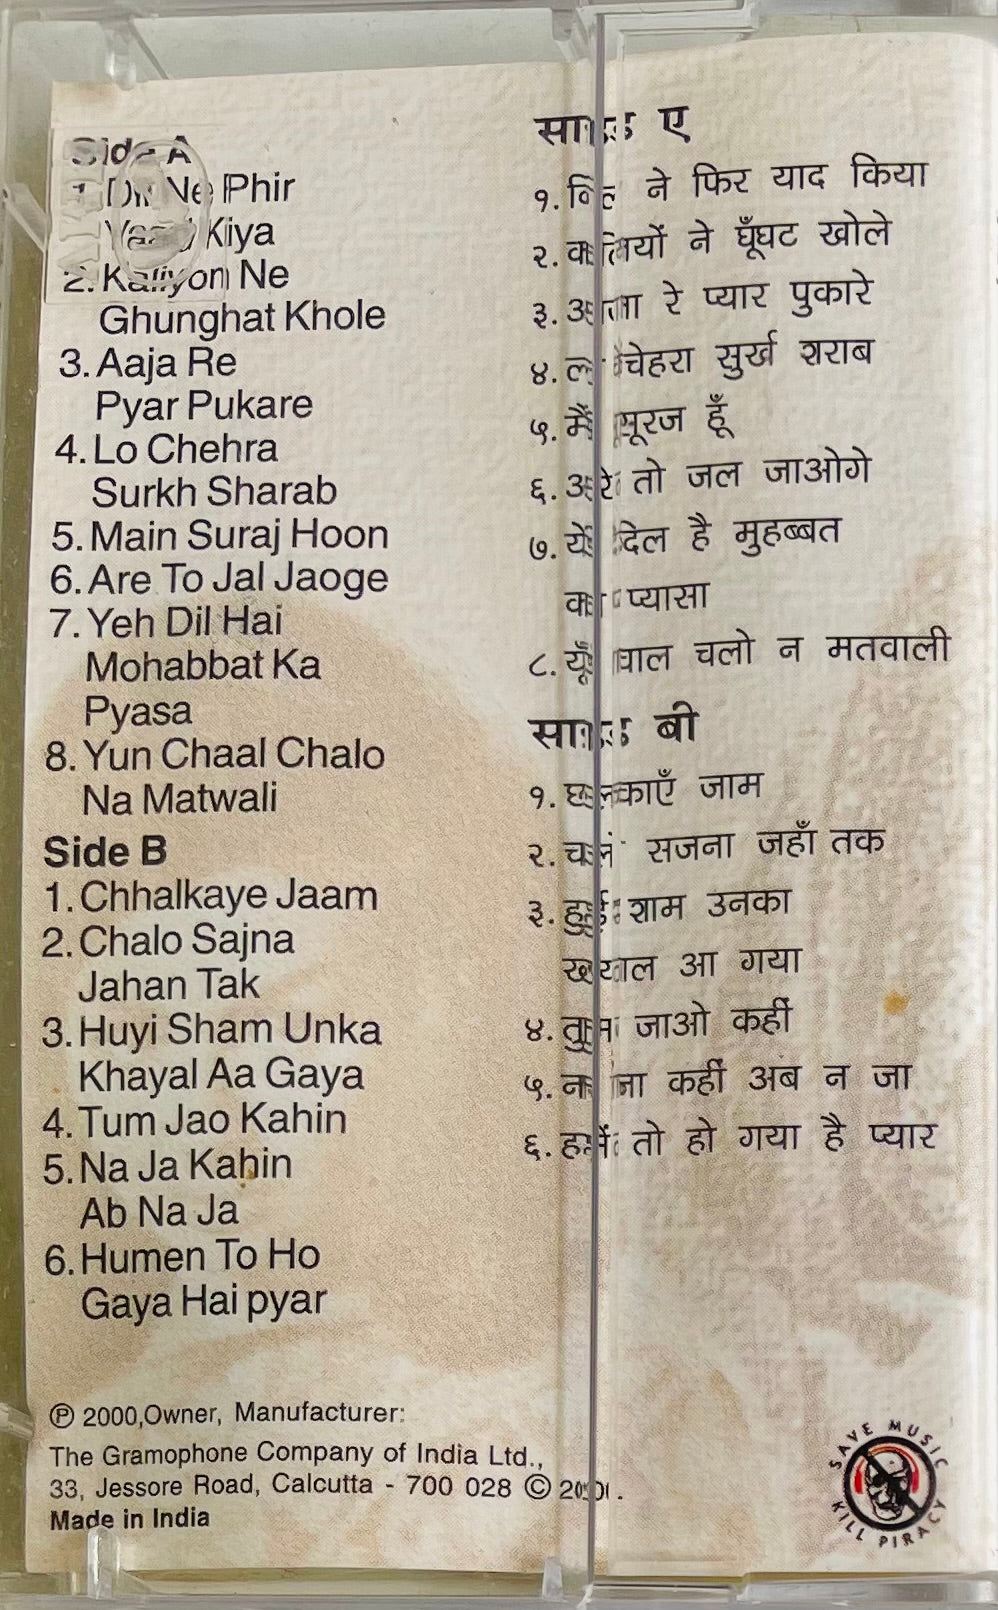 Side A
1. Dil Ne Phir
Yaad Kiya
2. Kaliyon Ne
Ghunghat Khole
3. Aaja Re
Pyar Pukare
4. Lo Chehra
Surkh Sharab
5. Main Suraj Hoon
6. Are To Jal Jaoge
7. Yeh Dil Hai
Mohabbat Ka
Pyasa
8. Yun Chaal Chalo
Na Matwali
Side B
1. Chhalkaye Jaam
2. Chalo Sajna
Jahan Tak
3. Huyi Sham Unka
Khayal Aa Gaya
4. Tum Jao Kahin
5. Na Ja Kahin
Ab Na Ja
6. Humen To Ho
Gaya Hai pyar
℗ 2000,Owner, Manufacturer:
The Gramophone Company of India Ltd.,
33, Jessore Road, Calcutta - 700 028 © 2000.
Made in India
साइड ए
१. दिल ने फिर याद किया
२. कलियों ने घूँघट खोले
३. आजा रे प्यार पुकारे
४. लो चेहरा सुर्ख शराब
५. मैं सूरज हूँ
६. अरे तो जल जाओगे
७. ये दिल है मुहब्बत
का प्यासा
८. यूँ चाल चलो न मतवाली
साइड बी
१. छलकाएँ जाम
२. चलो सजना जहाँ तक
३. हुई शाम उनका
ख्याल आ गया
४. तुम जाओ कहीं
५. ना जा कहीं अब न जा
६. हमें तो हो गया है प्यार
SAVE MUSIC
KILL PIRACY